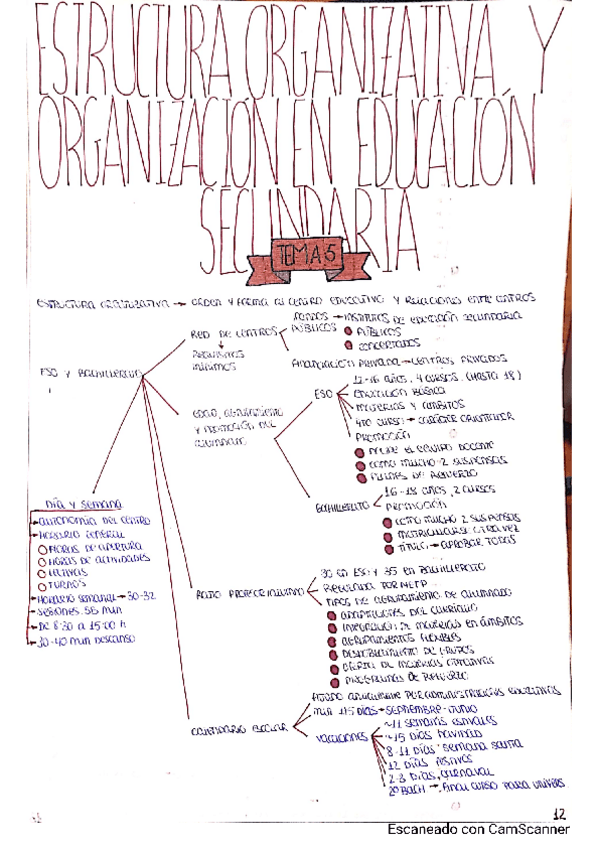 ESTRUCTURA ORGANIZATIVA Y
ORGANIZACIÓN EN EDUCACIÓN
SECUNDARIA
TEMA 5
ESTRUCTURA ORGANIZATIVA → ORDEN Y FORMA AL CENTRO EDUCATIVO Y RELACIONES ENTRE CENTROS
ESO Y BACHILLERATO
RED DE CENTROS
REQUISITOS
MÍNIMOS
FONDOS → INSTITUTOS DE EDUCACIÓN SECUNDARIA
PÚBLICOS
PÚBLICOS
CONCERTADOS
FINANCIACIÓN PRIVADA → CENTROS PRIVADOS
EDAD, AGRUPAMIENTO
Y PROMOCIÓN DEL
ALUMNADO
ESO
12-16 AÑOS, 4 CURSOS (HASTA 18)
EDUCACIÓN BÁSICA
MATERIAS Y ÁMBITOS
4TO CURSO → CARÁCTER ORIENTADOR
PROMOCIÓN
DECIDE EL EQUIPO DOCENTE
COMO MUCHO 2 SUSPENSAS
PLANES DE REFUERZO
BACHILLERATO
16-18 AÑOS, 2 CURSOS
PROMOCIÓN
COMO MUCHO 2 SUSPENSAS
MATRICULARSE OTRA VEZ
TÍTULO → APROBAR TODAS
DÍA Y SEMANA
AUTONOMÍA DEL CENTRO
HORARIO GENERAL
HORAS DE APERTURA
HORAS DE ACTIVIDADES
LECTIVAS
TURNOS
HORARIO SEMANAL → 30-32
SESIONES: 55 MIN
DE 8:30 A 15:00 H
30-40 MIN DESCANSO
RATIO PROFESOR/ALUMNO
30 EN ESO Y 35 EN BACHILLERATO
REGULADA POR MEFP
TIPOS DE AGRUPAMIENTO DE ALUMNADO
ADAPTACIONES DEL CURRÍCULO
INTEGRACIÓN DE MATERIAS EN ÁMBITOS
AGRUPAMIENTOS FLEXIBLES
DESDOBLAMIENTO DE GRUPOS
OFERTA DE MATERIAS OPTATIVAS
PROGRAMAS DE REFUERZO
CALENDARIO ESCOLAR
FIJADO ANUALMENTE POR ADMINISTRACIONES EDUCATIVAS
MIN 175 DÍAS → SEPTIEMBRE-JUNIO
VACACIONES
~11 SEMANAS ESTIVALES
~15 DÍAS NAVIDAD
8-11 DÍAS SEMANA SANTA
12 DÍAS FESTIVOS
2-3 DÍAS CARNAVAL
2º BACH → FINAL CURSO PARA UNIVERS.
12
Escaneado con CamScanner